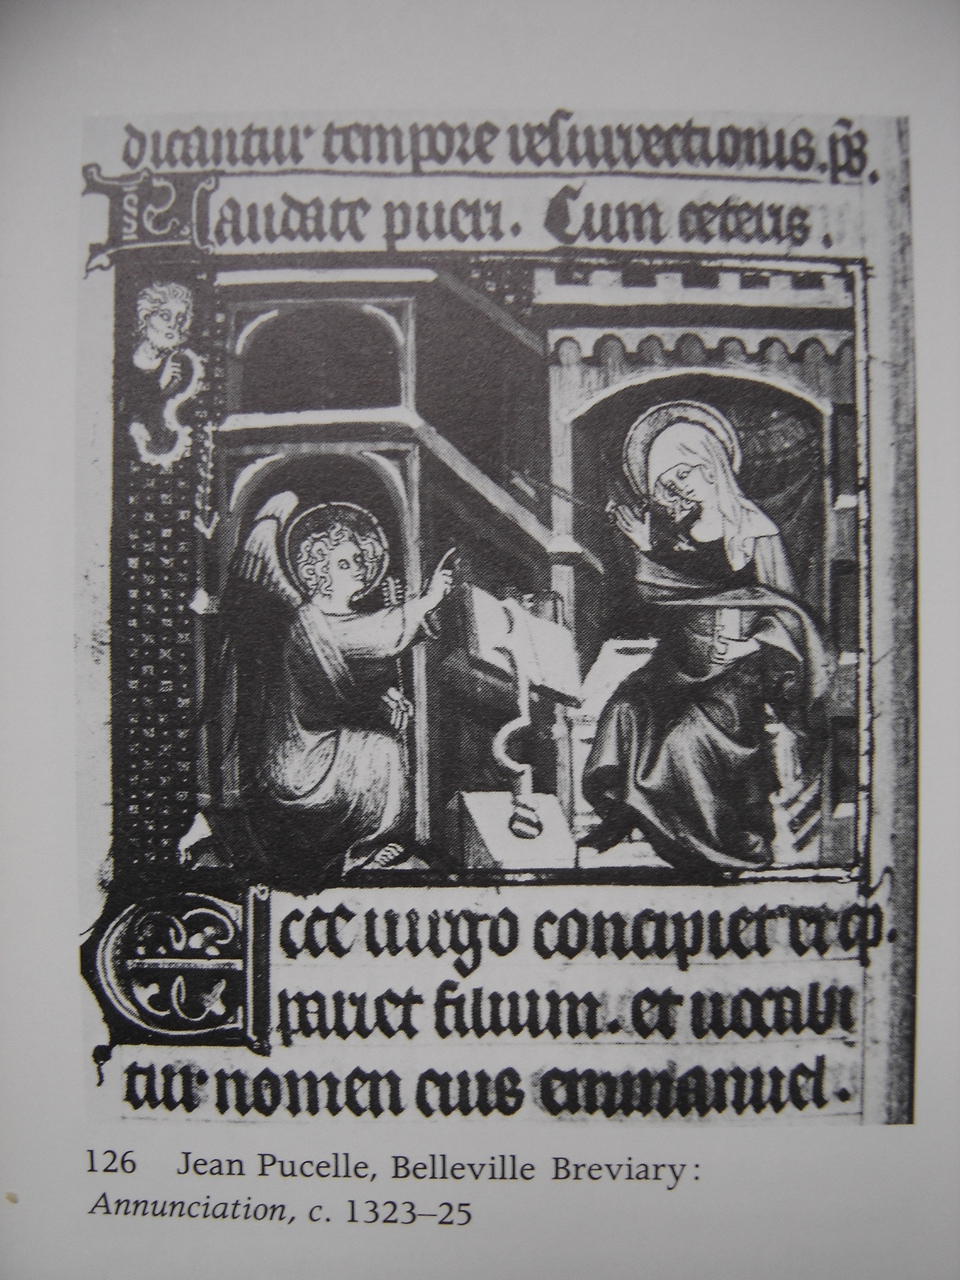 dicantur tempore resurrectionis. ps.
Laudate pueri. Cum ceteris.
Ecce uirgo concipiet et
pariet filium. et uocabi
tur nomen eius emmanuel.
126 Jean Pucelle, Belleville Breviary:
Annunciation, c. 1323–25